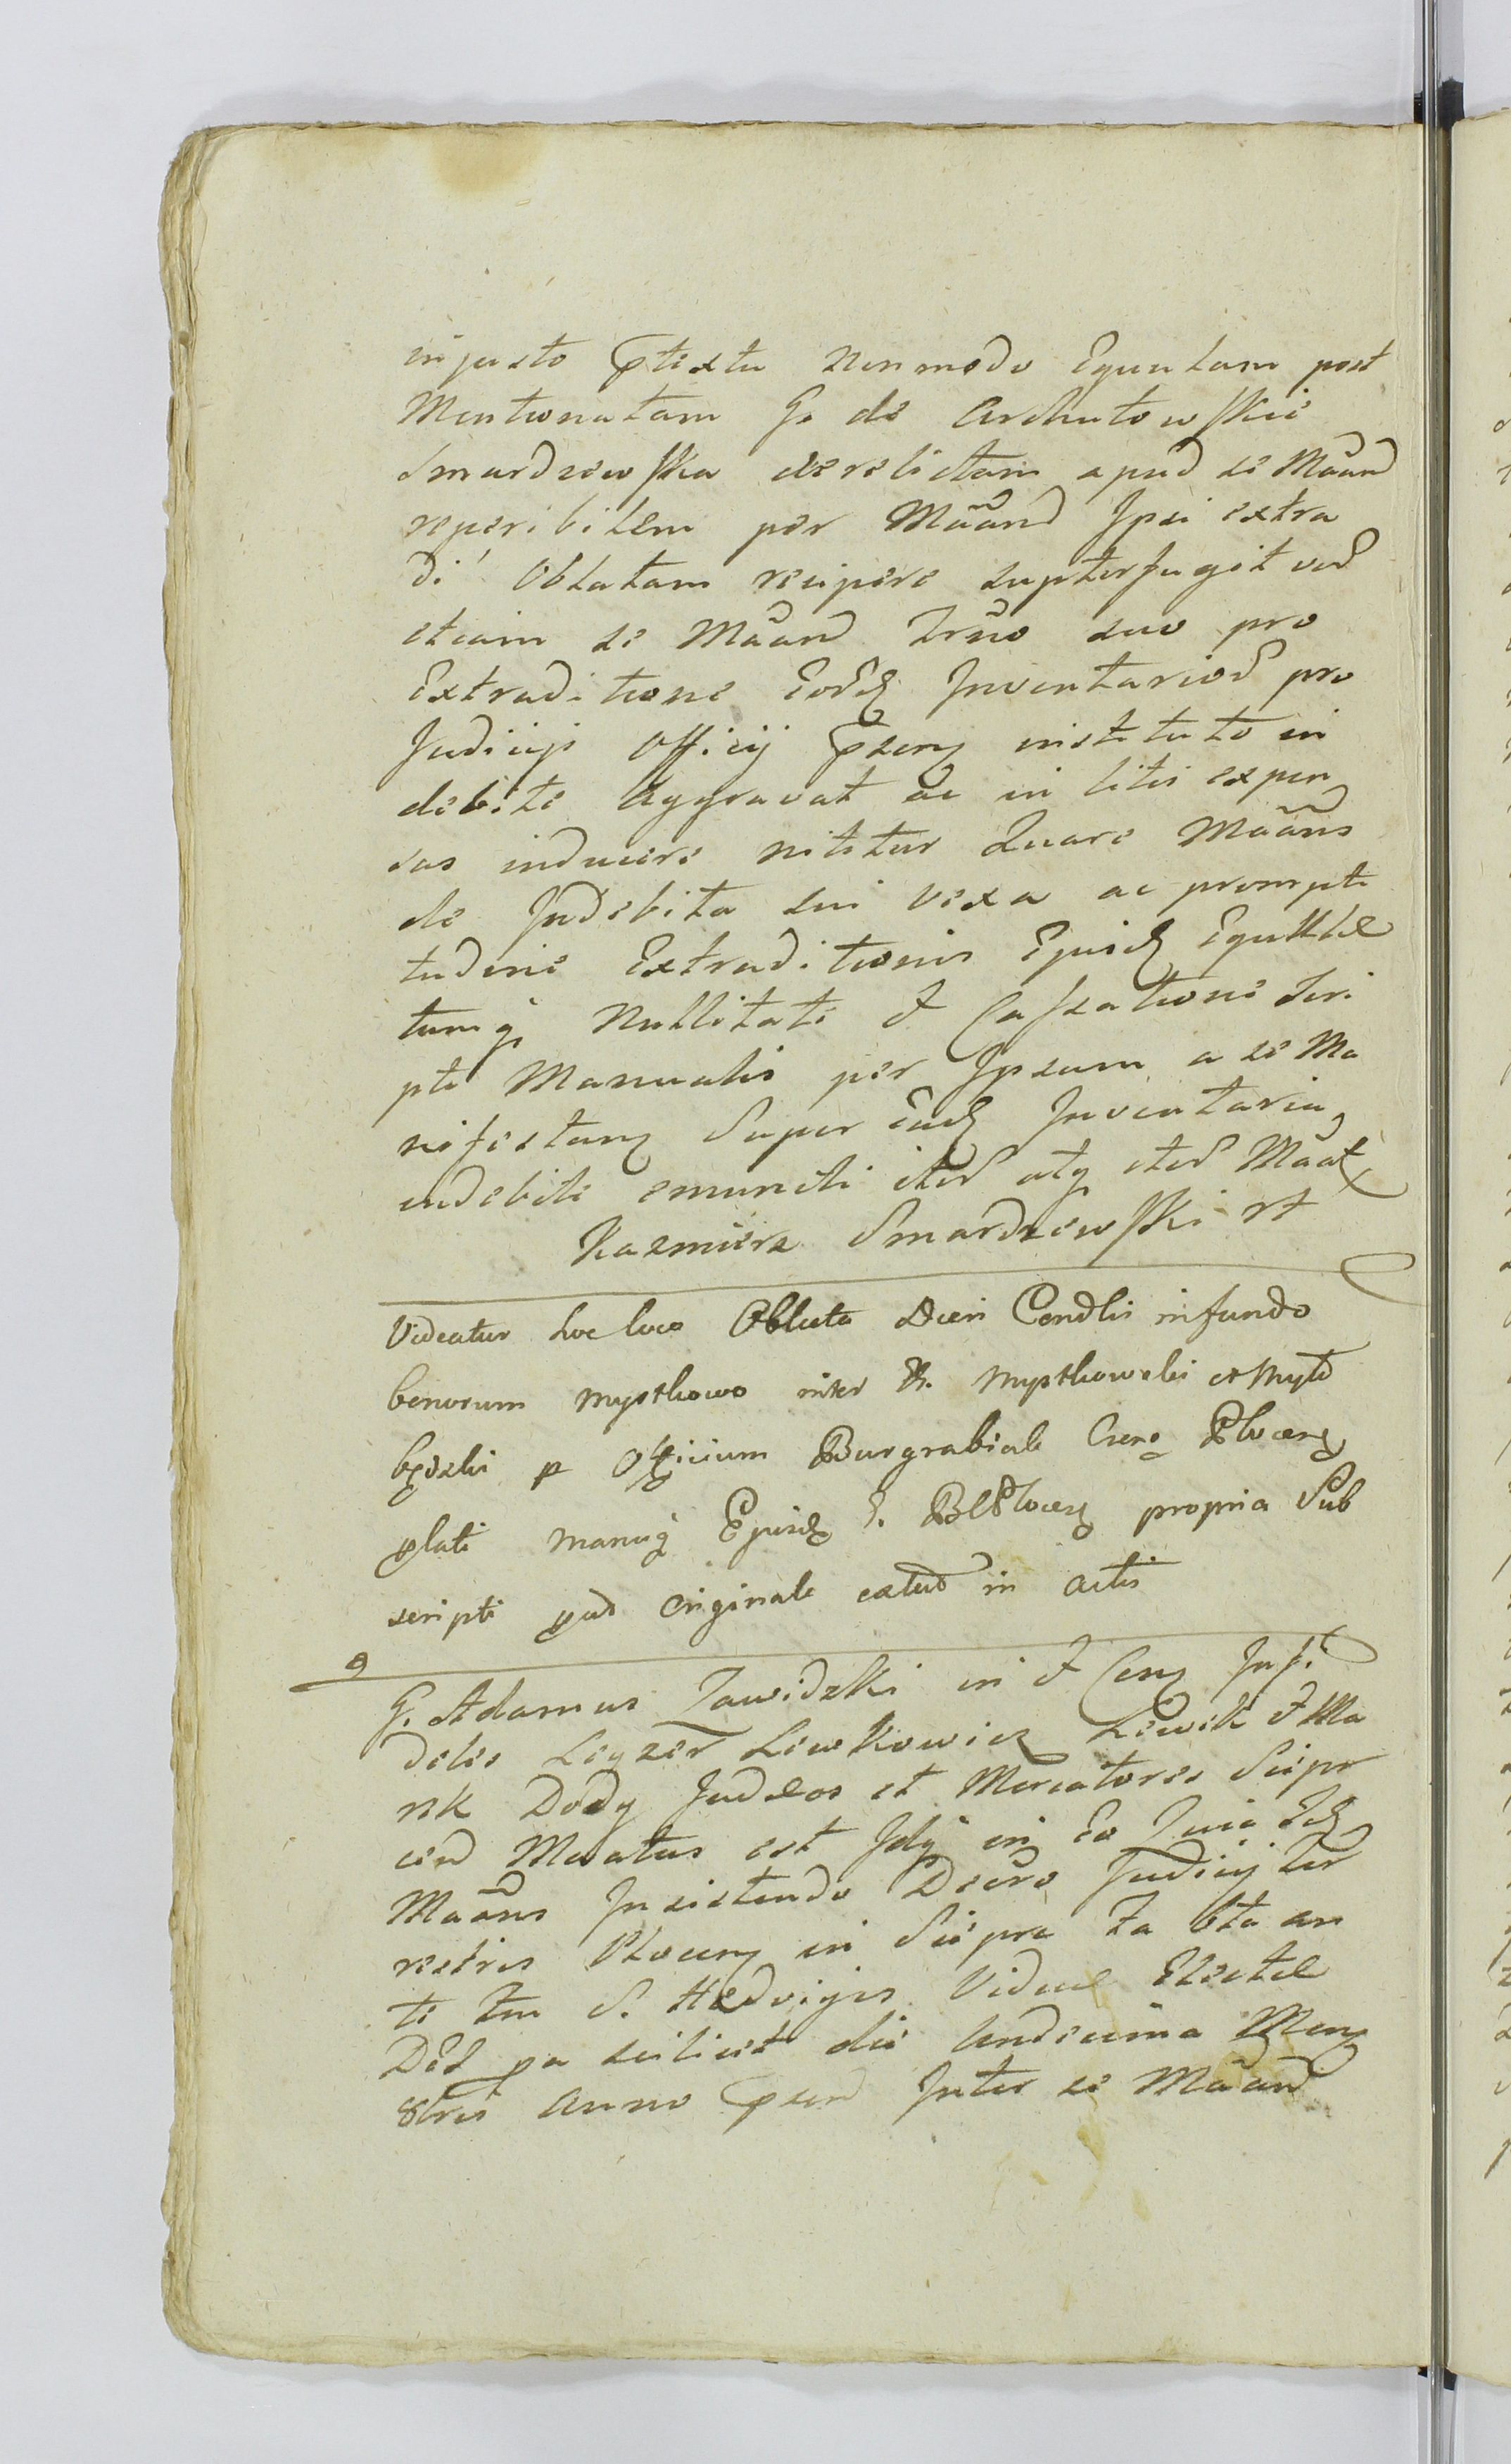 injusto ptextu nonmodo Equulam post
Mentionatam G. de Archutowskie
Smardzewska derelictam apud se Maand
reperibilem per Maand Ipsi extra
di Oblatam recipere supterfugit ved
etiam se Maand Trno suo pro
Extraditione Eord Inventariod pro
Judicijs Officij Psenz instituto in
debite Aggravat ac in litis expen
sas inducere nititur Quare Maans
de Indebita sui vexa ac prompti
tudine Extraditionis Ejusd Equllae
tumq Nullitate & Cassatione Scri
pti Manualis per Ipsum a se Ma
nifestanz Super Ead Inventaria
indebite emuncti itid atq itid Maat
Kazmierz Smardzewski
Videatur hoc loco Oblata Dcen Condlis in fundo
bonorum Mysthowo inter G. Mysthowski et
p Officium Burgrabiale Plocenz
plati manuq Ejusd G. propria Sub
scripti qud Originale extud in Actis
9
G. Adamus Zawidzki in & Cenz Infi
deles Leyzer Lewkowicz Lewik & Ma
nk Dody Judaeos et Mercatores Sierpr
cien Maatus est Idq in Eo Quia Id
Maans Insistendo Decro Judicij Ter
restris Plocenz in Sierpcu Fa 6ta an
te Fm S. Hedvigis Viduae Electae
Dcd pa scilicet die Undecima Menz
8bris Anno psen Inter se Maand